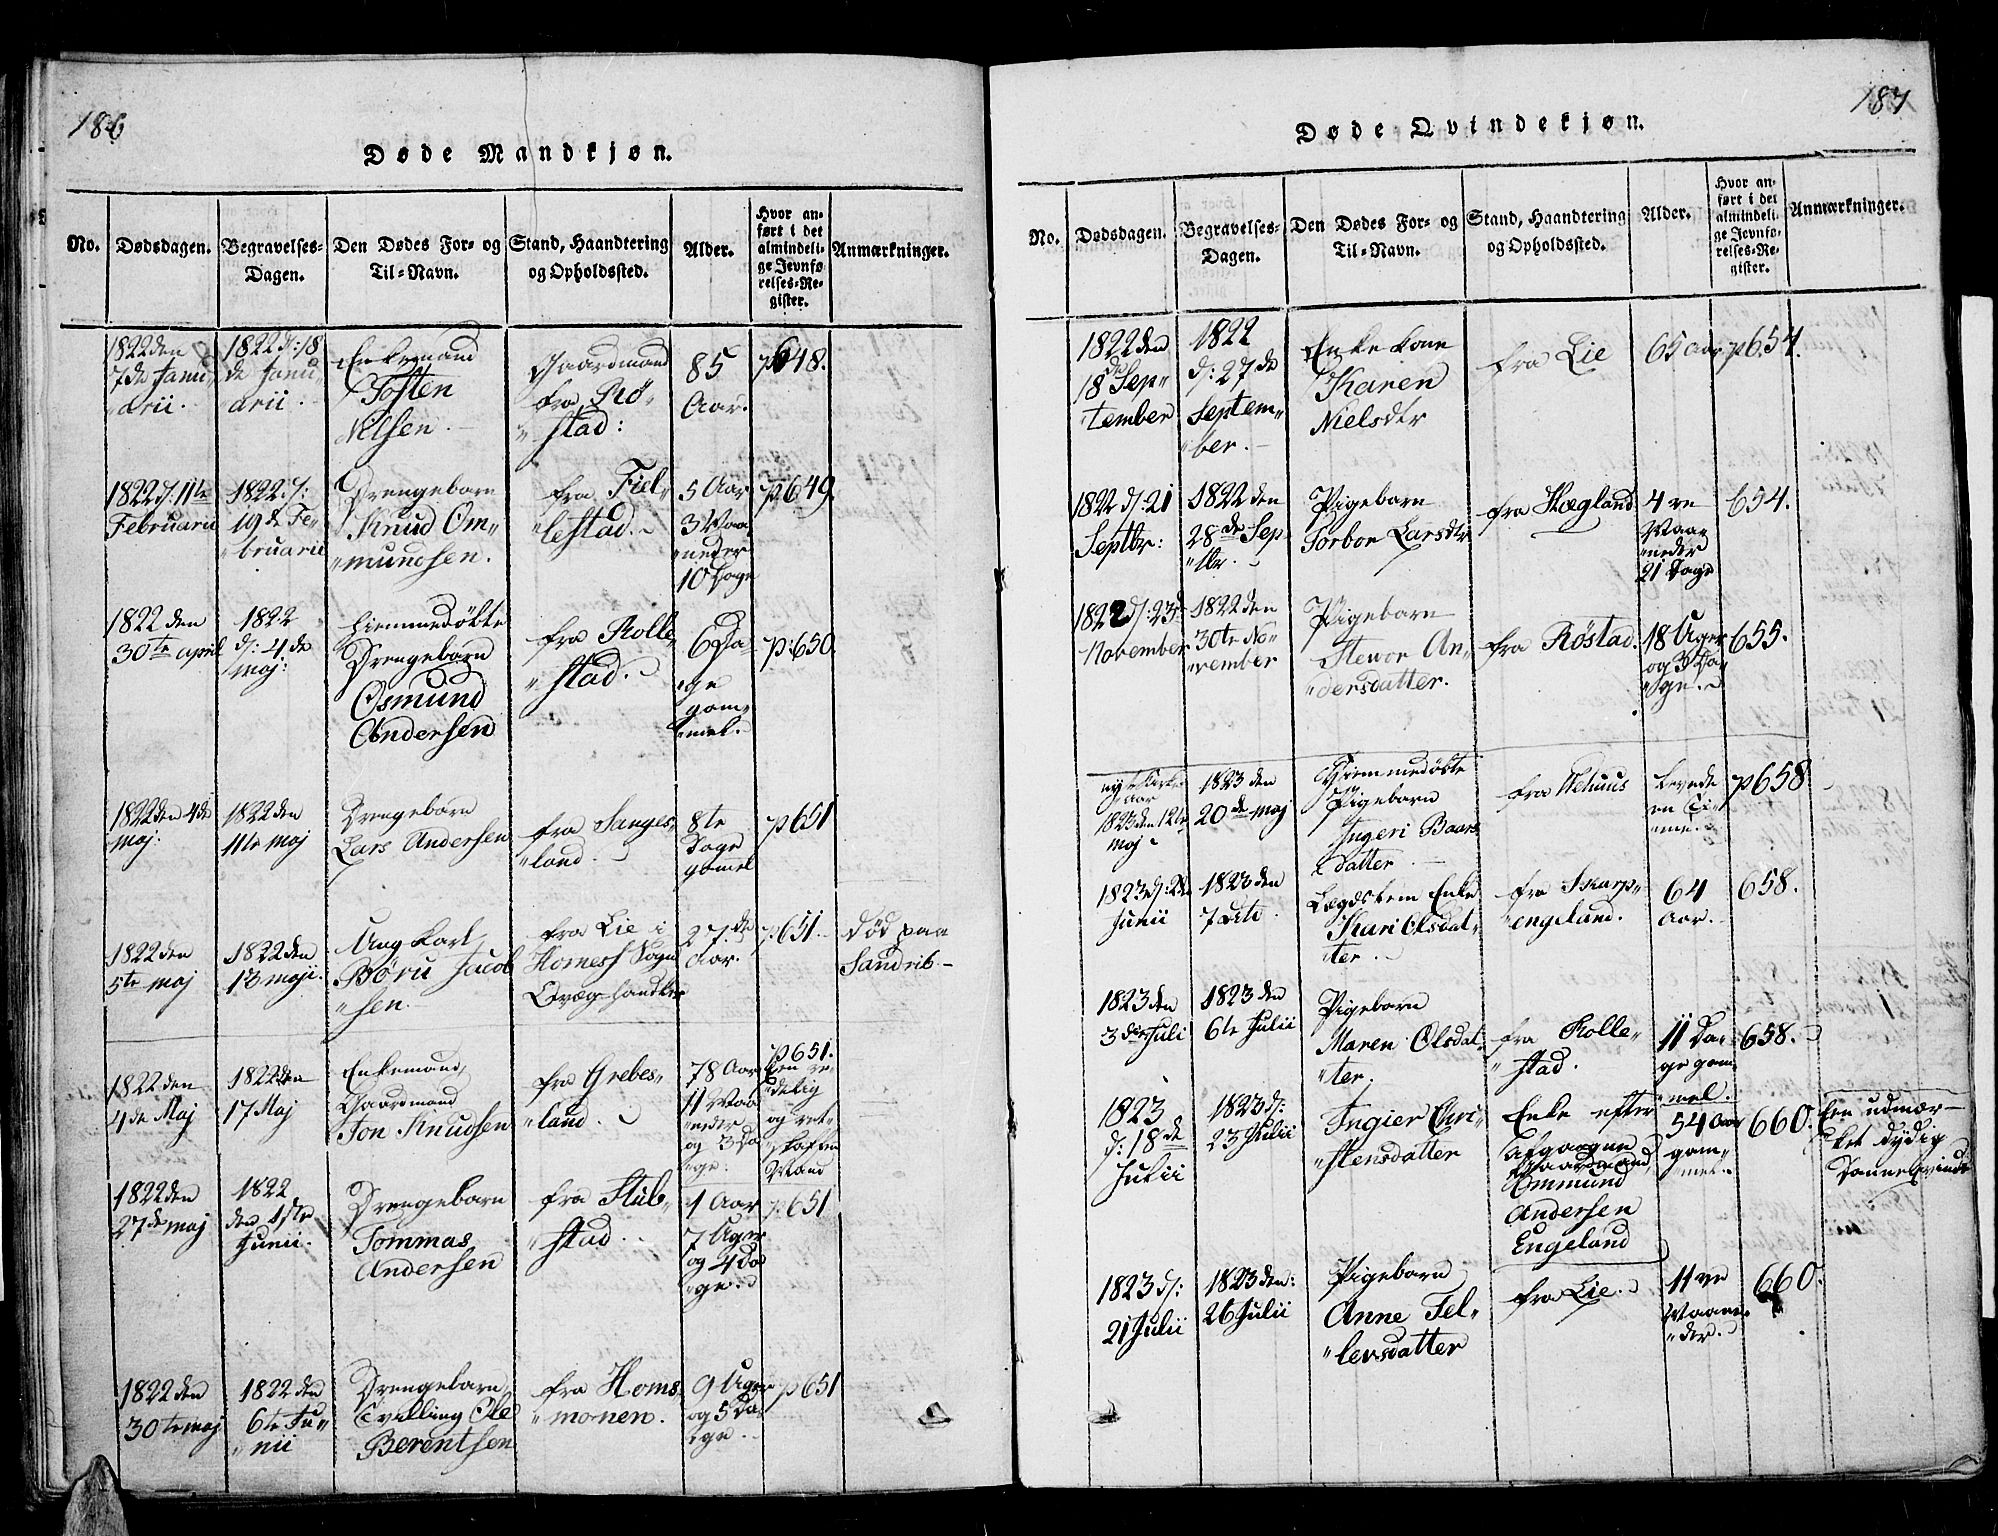 186
Døde Mandkjøn.
No.
Dødsdagen.
Begravelses-
Dagen.
Den Dødes For- og
Til-Navn.
Stand, Haandtering
og Opholdssted.
Alder.
Hvor an-
ført i det
almindeli-
ge Jevnfø
relses-Re-
gister.
Anmærkninger.
1822 den
7de Janu-
arii.
1822 d: 18
de Janu-
arii.
Enkemand
Tosten
Nilsen.
Gaardmand
fra Rø-
"stad:
85
Aar.
p648.
1822 d: 11te
Februarii
1822 d:
19de Fe-
"bruarii
Drengebarn
Knud Om-
"mundsen.
fra Fiel-
"lestad.
5 Aar
3 Maa
"neder
10 Dage
p649.
1822 den
30te april
1822
d: 4de
maj:
Hiemmedøbte
Drengebarn
Osmund
Andersen
fra Rolle-
"stad.
6 Da-
"ge
gam-
"mel.
p:650.
1822 den 4de
maj:
1822 den
11te maj
Drengebarn
Lars Andersen
fra Sanges-
"land.
8te
Dage
gamel
p651
1822 den
5te maj
1822 den
13 maji.
Ung karl
Børu Jacob
"sen.
fra Lie i
Homess Sogn
Qvæghandler
27de
Aar.
p651.
Død paa
Sandrib-
1822 den
4de Maj
1822 den
17 Maj
Enkemand,
Gaardmand
Jon Knudsen
fra Grebes-
"land.
78 Aar
11 Maa
"neder
og 3 Da
"ge.
p651.
Een re-
delig
og ret-
skaffen
Mand
1822 den
27de maj
1822
den 1ste
Junii.
Drengebarn
Tommas
Andersen
fra Stub-
"stad.
1 Aar
7 Uger
og 4 Da
"ge.
p651
1822 den
30te maj
1822 den
6te Ju-
"nii
Drengebarn
Tvilling Ole
Berentsen
fra Homs-
"monen.
9 Uger
og 5 Da-
"ge.
p651
187
Døde Qvindekjøn.
No.
Dødsdagen.
Begravelses-
Dagen.
Den Dødes For- og
Til-Navn.
Stand, Haandtering
og Opholdssted.
Alder.
Hvor an-
ført i det
almindeli-
ge Jevnfø-
relses-Re-
gister.
Anmærkninger.
1822 den
18de Sep-
tember
1822
d: 27de
Septem-
"ber.
Enkekone
Karen
Nielsdtr
fra Lie
65 aar
p654.
1822 d: 21
Septbr:
1822 den
28de Sep-
"tbr.
Pigebarn
Torbor Larsdtr
fra Hægland
4re
Maa-
"neder
21 Dage
654.
1822 d: 23de
November
1822 den
30te No-
"vember
Pigebarn
An-
"dersdatter.
fra Røstad.
18 Uger
og 3 Da-
"ge.
655.
nyt Kirke
Aar
1823 den 12te
maj
1823 den
20de maj
Hiemmedøbte
Pigebarn
Ingeri Baars
datter
fra Wehuus
Levede
en Ti-
me.
p658
1823 d:
Junii
1823 den
7
Lægdslem Enke
Kari Olsdat-
"ter.
fra Skarp-
"engeland.
64
Aar.
658.
1823 den
3die Juli
1823 den
6te Julii
Pigebarn
Maren Olsdat-
"ter.
fra Rolle-
"stad.
11 Da-
ge gam-
"mel.
658.
1823
d: 18de
Julii
1823 d:
23 Julii
Ingier Chri-
"stensdatter
Enke efter
afgangne
Gaardmand
Ommund
Andersen
Engeland
54 Aar
gam-
"mel.
660.
Een udmær-
ket dydig
Danneqvinde
1823 d:
21 Julii
1823 den:
26 Julii
Pigebarn
Anne Fel-
"levsdatter
fra Lie.
11ve
Maane-
"der.
660.